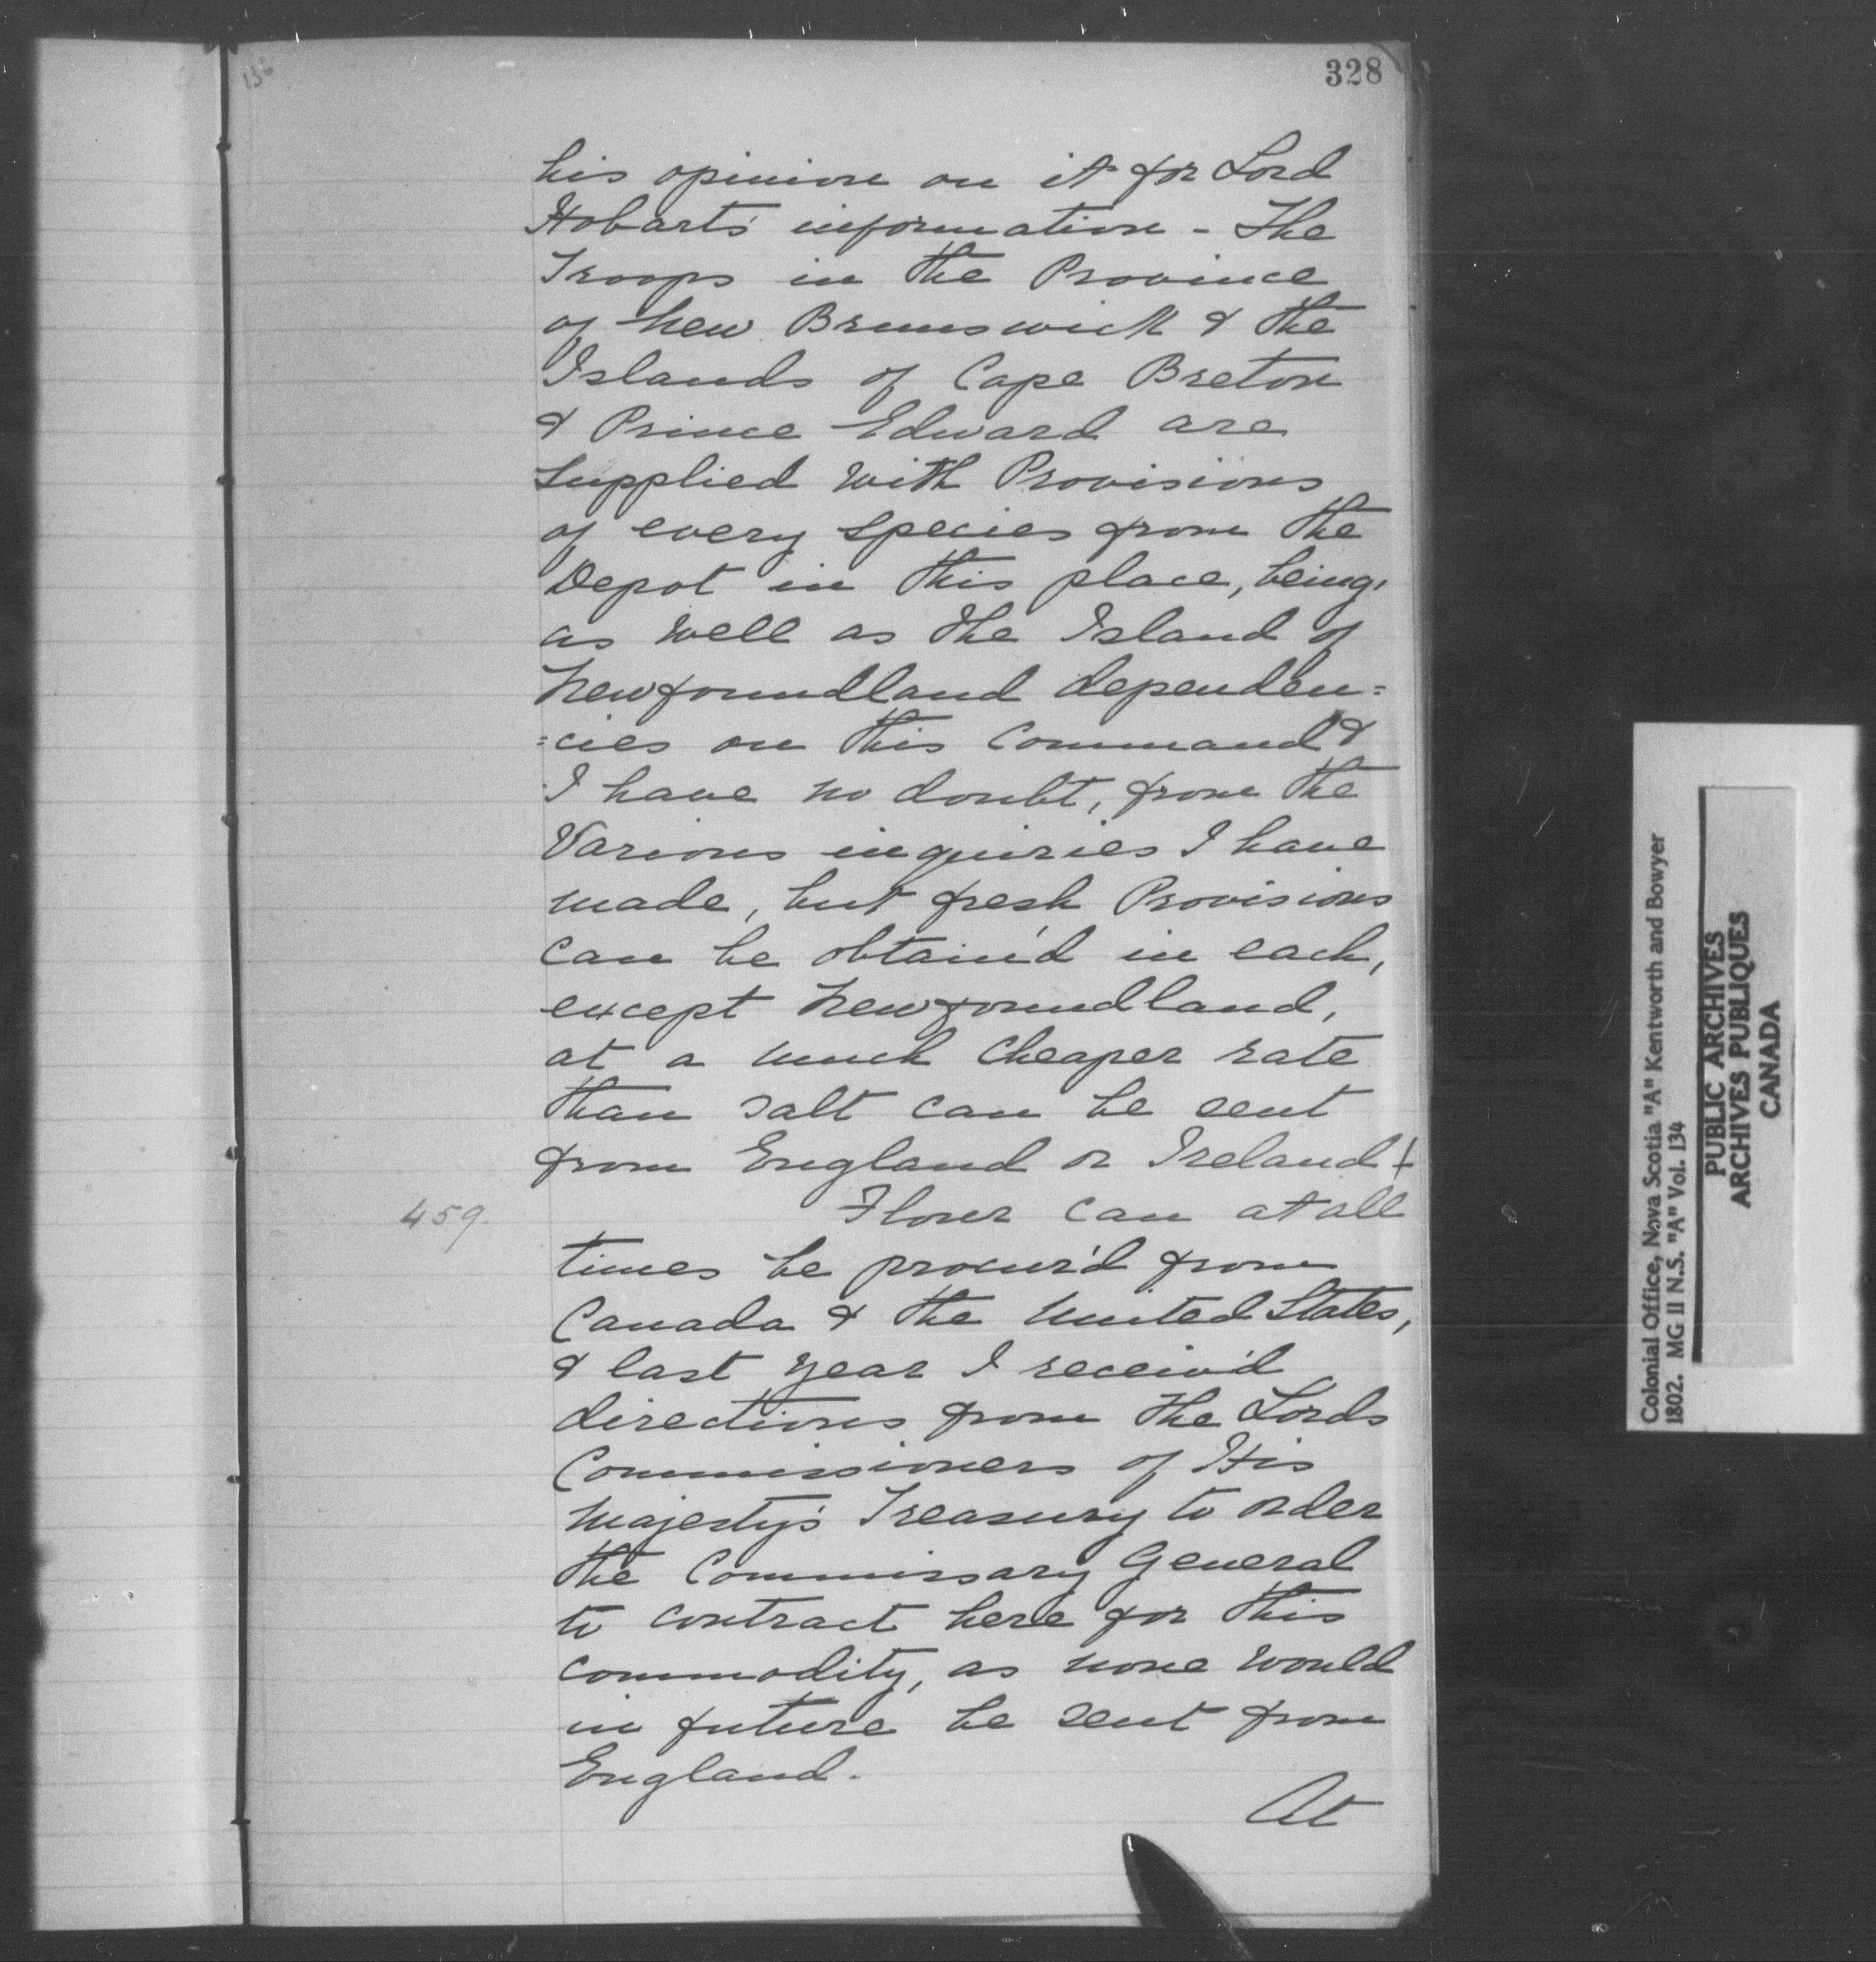 328
136
his opinion on it for Lord
Hobart's information - The
Troops in the Province
of New Brunswick & the
Islands of Cape Breton
& Prince Edward are
supplied with Provisions
of every species from the
Depot in this place, being,
as well as the Island of
Newfoundland dependen=
=cies on this Command &
I have no doubt, from the
Various inquiries I have
made, but fresh Provisions
can be obtain'd in each,
except Newfoundland,
at a much Cheaper rate
than salt can be sent
from England or Ireland +
459.
Flour can at all
times be procur'd from
Canada & the United States,
& last year I receiv'd
directions from the Lords
Commissioners of His
Majesty's Treasury to order
the Commissary General
to contract here for this
commodity, as none would
in future be sent from
England.
At
Colonial Office, Nova Scotia "A" Kentworth and Bowyer
1802. MG II N.S. "A" Vol. 134
PUBLIC ARCHIVES
ARCHIVES PUBLIQUES
CANADA